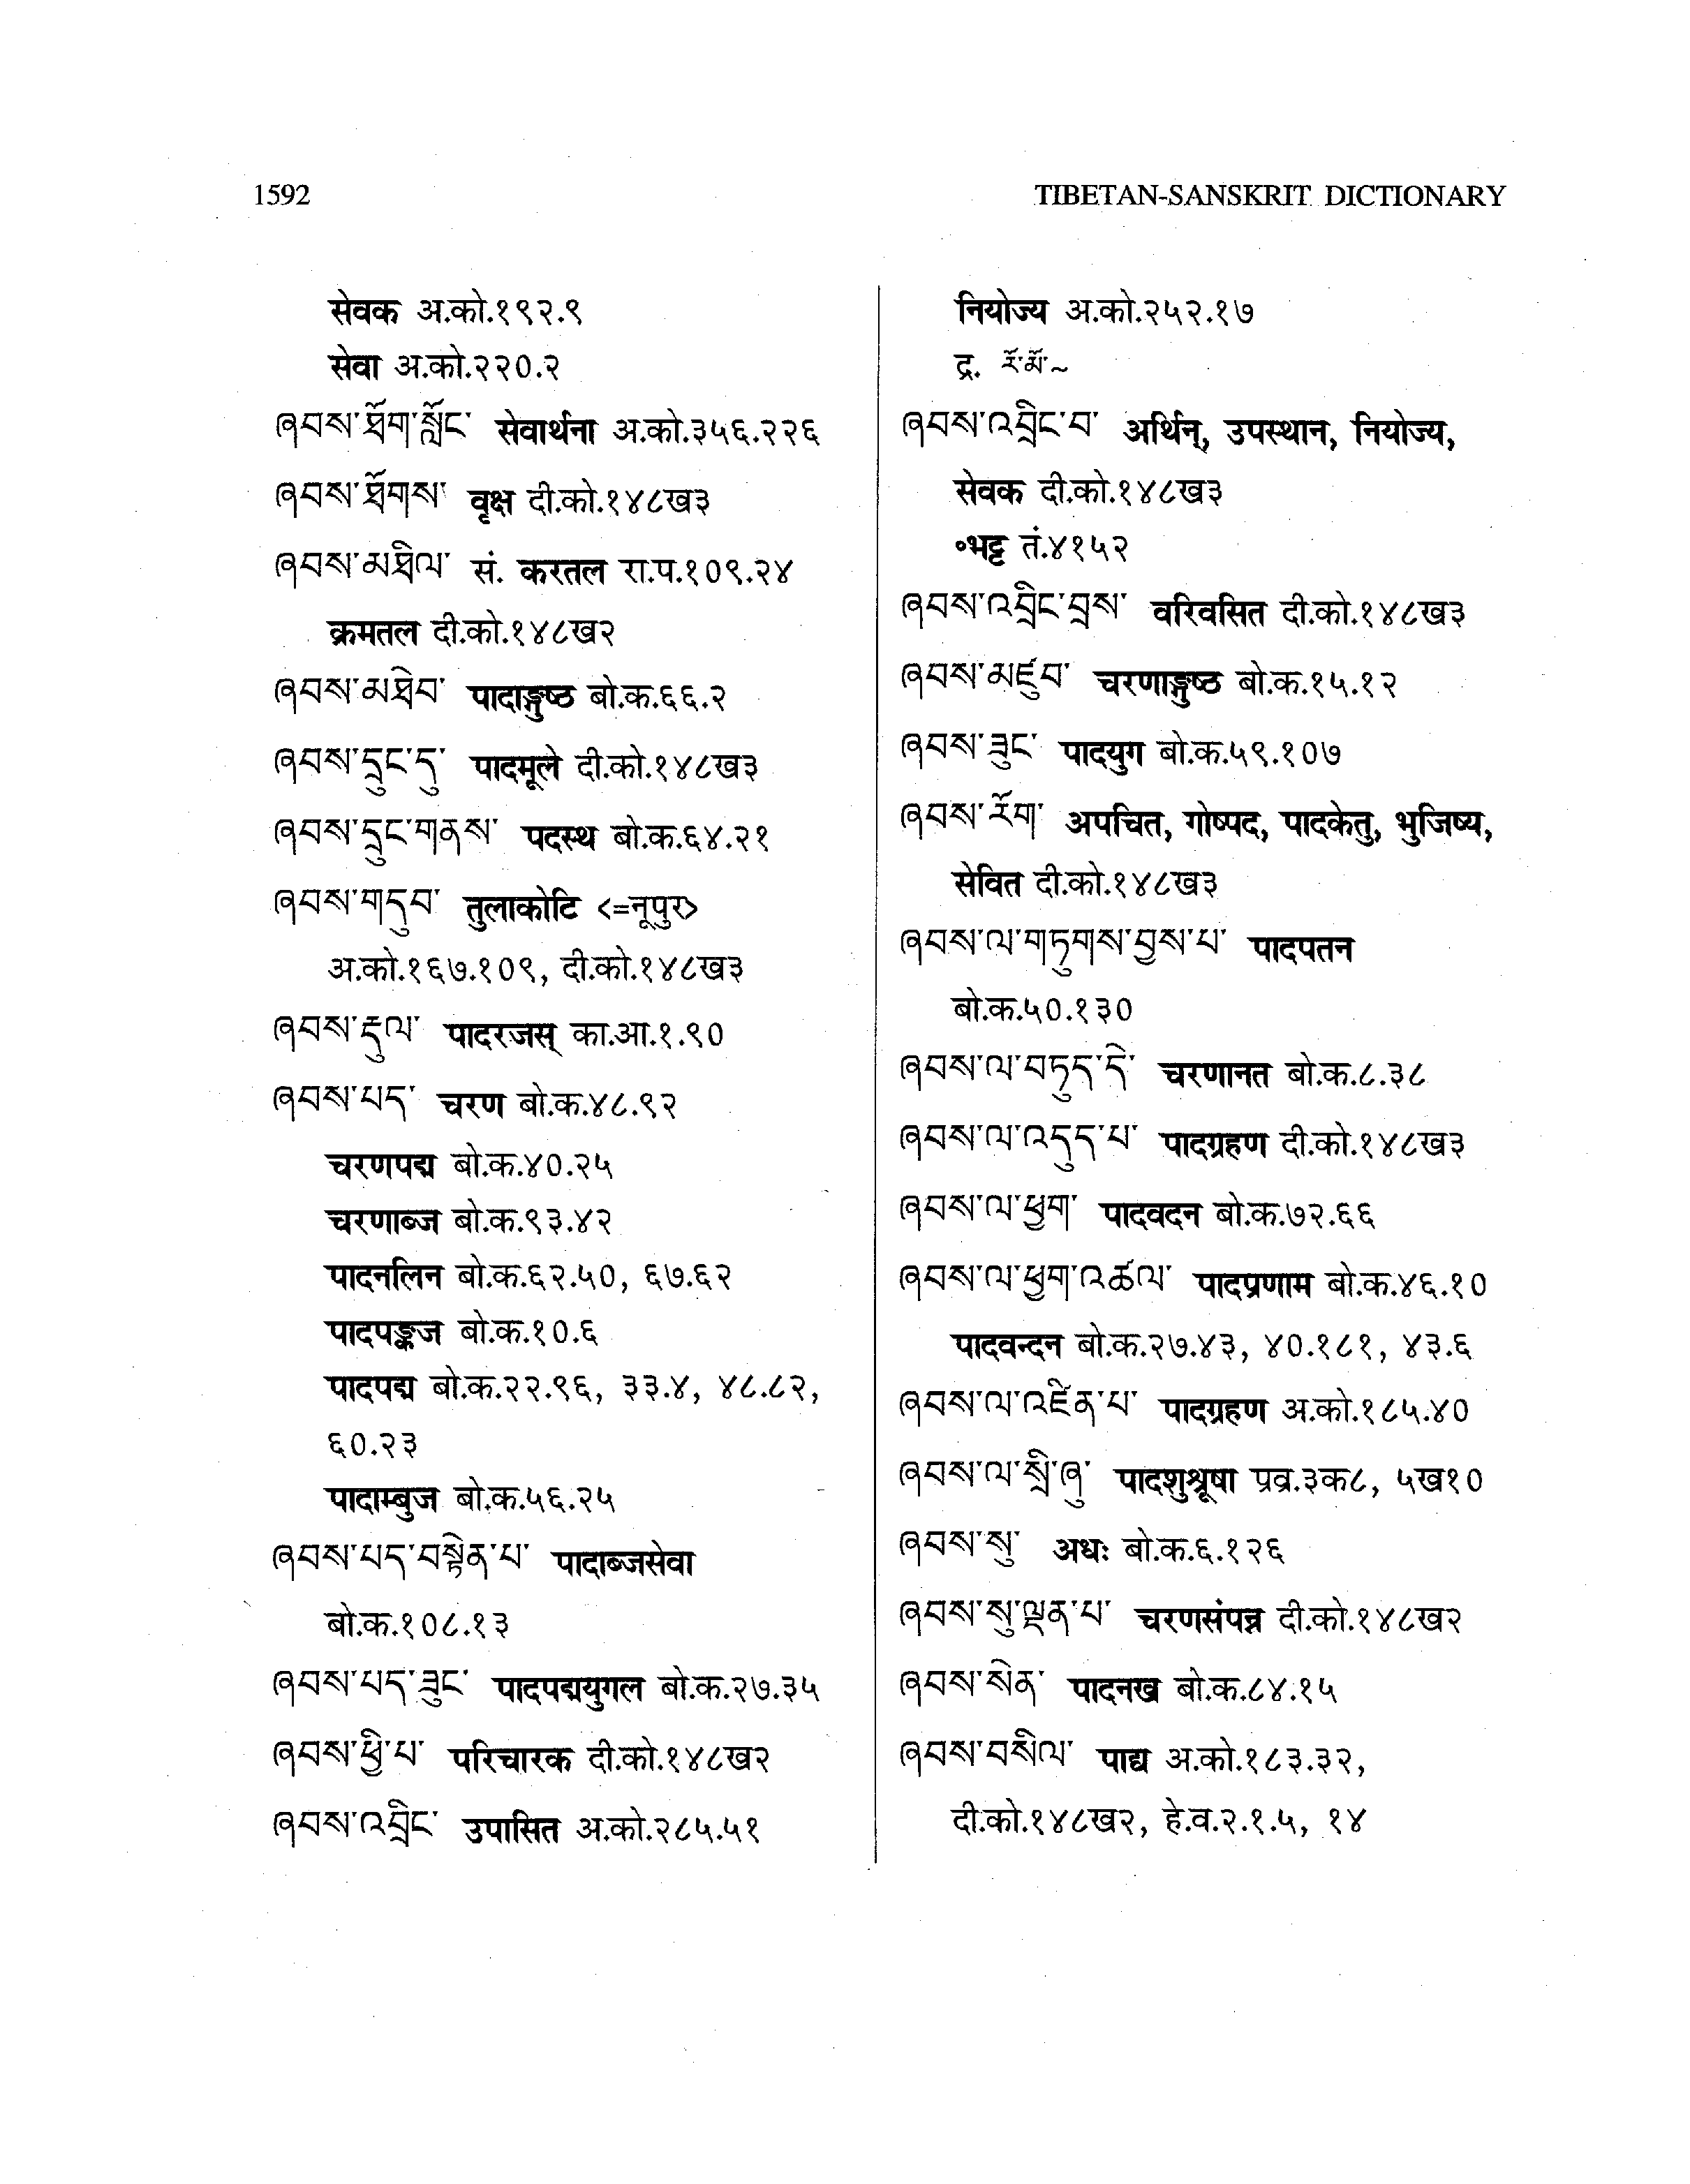 1592
TIBETAN-SANSKRIT DICTIONARY
सेवक अ.को.१९२.९
सेवा अ.को.२२०.२
ཞབས་ཐོག་སློང་ सेवार्थना अ.को.३५६.२२६
ཞབས་ཐོགས་ वृक्ष दी.को.१४८ख३
ཞབས་མཐིལ་ सं. करतल रा.प.१०९.२४
क्रमतल दी.को.१४८ख२
ཞབས་མཐེབ་ पादाङ्गुष्ठ बो.क.६६.२
ཞབས་དྲུང་དུ་ पादमूले दी.को.१४८ख३
ཞབས་དྲུང་གནས་ पदस्थ बो.क.६४.२१
ཞབས་གདུབ་ तुलाकोटि <=नूपुर>
अ.को.१६७.१०९, दी.को.१४८ख३
ཞབས་རྡུལ་ पादरजस् का.आ.१.९०
ཞབས་པད་ चरण बो.क.४८.९२
चरणपद्म बो.क.४०.२५
चरणाब्ज बो.क.९३.४२
पादनलिन बो.क.६२.५०, ६७.६२
पादपङ्कज बो.क.१०.६
पादपद्म बो.क.२२.९६, ३३.४, ४८.८२,
६०.२३
पादाम्बुज बो.क.५६.२५
ཞབས་པད་བསྟེན་པ་ पादाब्जसेवा
बो.क.१०८.१३
ཞབས་པད་ཟུང་ पादपद्मयुगल बो.क.२७.३५
ཞབས་ཕྱི་པ་ परिचारक दी.को.१४८ख२
ཞབས་འབྲིང་ उपासित अ.को.२८५.५१
नियोज्य अ.को.२५२.१७
द्र. རོ་མོ་~
ཞབས་འབྲིང་བ་ अर्थिन्, उपस्थान, नियोज्य,
सेवक दी.को.१४८ख३
॰भट्ट तं.४१५२
ཞབས་འབྲིང་བྲས་ वरिवसित दी.को.१४८ख३
ཞབས་མཛུབ་ चरणाङ्गुष्ठ बो.क.१५.१२
ཞབས་ཟུང་ पादयुग बो.क.५९.१०७
ཞབས་རོག་ अपचित, गोष्पद, पादकेतु, भुजिष्य,
सेवित दी.को.१४८ख३
ཞབས་ལ་གཏུགས་བྱས་པ་ पादपतन
बो.क.५०.१३०
ཞབས་ལ་བཏུད་དེ་ चरणानत बो.क.८.३८
ཞབས་ལ་འདུད་པ་ पादग्रहण दी.को.१४८ख३
ཞབས་ལ་ཕྱག་ पादवदन बो.क.७२.६६
ཞབས་ལ་ཕྱག་འཚལ་ पादप्रणाम बो.क.४६.१०
पादवन्दन बो.क.२७.४३, ४०.१८१, ४३.६
ཞབས་ལ་འཛིན་པ་ पादग्रहण अ.को.१८५.४०
ཞབས་ལ་སྲི་ཞུ་ पादशुश्रूषा प्रव्र.३क८, ५ख१०
ཞབས་སུ་ अधः बो.क.६.१२६
ཞབས་སུ་ལྡན་པ་ चरणसंपन्न दी.को.१४८ख२
ཞབས་སེན་ पादनख बो.क.८४.१५
ཞབས་བསིལ་ पाद्य अ.को.१८३.३२,
दी.को.१४८ख२, हे.व.२.१.५, १४